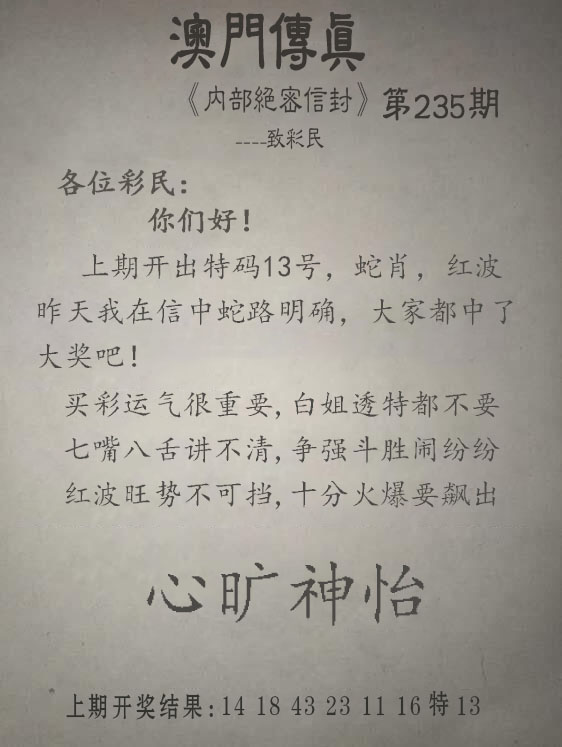 澳門傳真
《内部絕密信封》第235期
----致彩民
各位彩民：
你们好！
上期开出特码13号，蛇肖，红波
昨天我在信中蛇路明确，大家都中了
大奖吧！
买彩运气很重要,白姐透特都不要
七嘴八舌讲不清,争强斗胜闹纷纷
红波旺势不可挡,十分火爆要飙出
心旷神怡
上期开奖结果:14 18 43 23 11 16 特 13